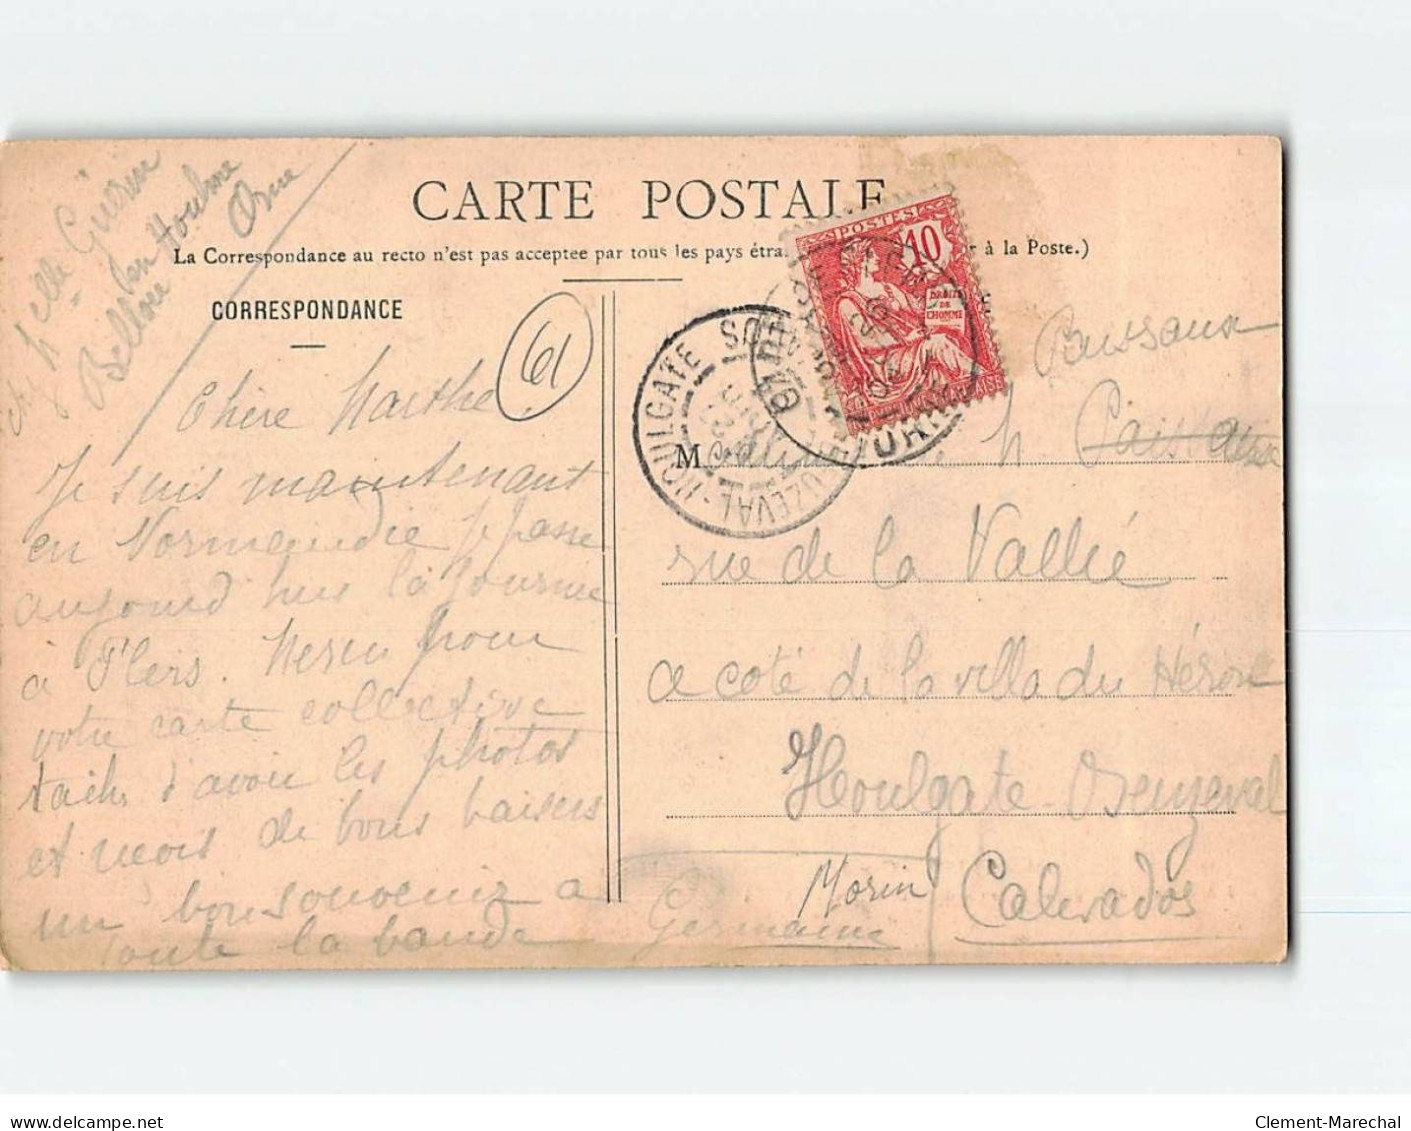 chez Melle Guérin
Bellou en Houlme
Orne
CARTE POSTALE
La Correspondance au recto n'est pas acceptee par tous les pays étra r à la Poste.)
CORRESPONDANCE
61
POSTES
10
DROITS
DE
L'HOMME
HOULGATE BEUZEVAL
Chère Marthe,
Je suis maintenant
en Normandie je passe
aujourd'hui la journée
à Flers. Merci pour
votre carte collective
d'avoir les photos
et mois de bons baisers
un bon souvenir a
toute la bande
Germaine
Morin
M
Buissaux
rue de la Vallée
a coté de la villa du Héron
Houlgate Beuzeval
Calvados
Clement-Marechal